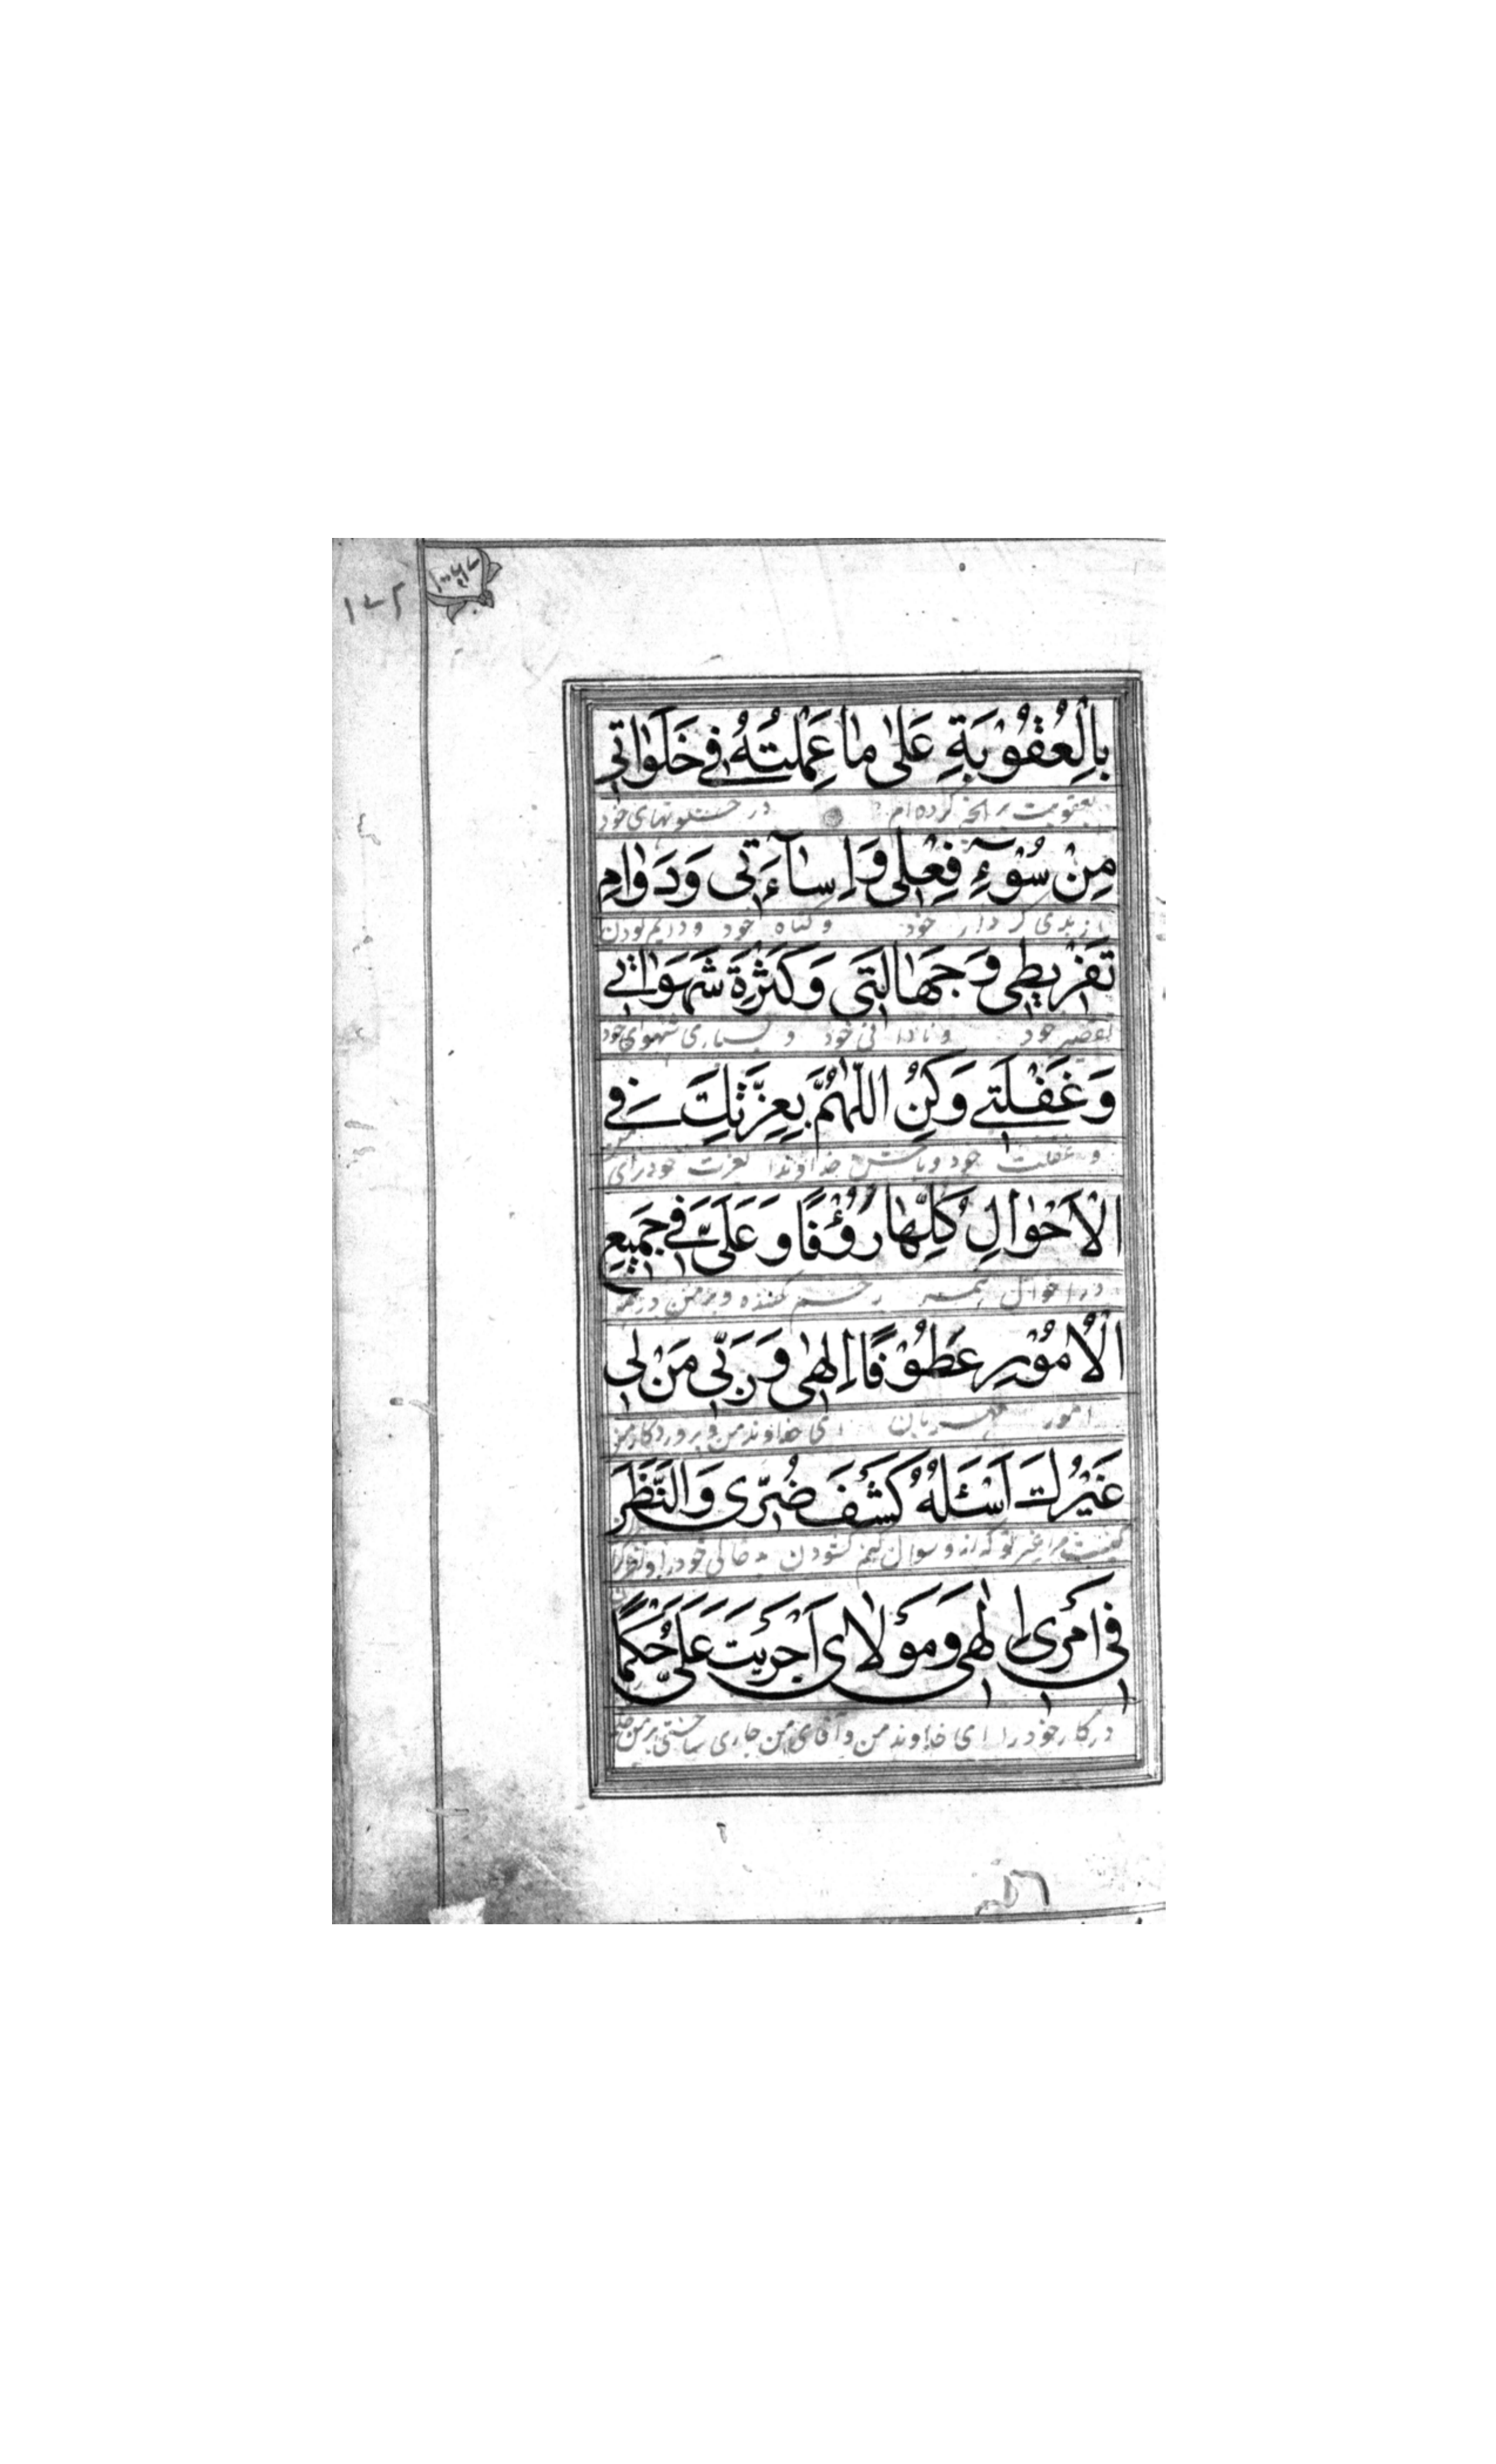 بِالْعُقُوْبَةِ عَلٰى مٰا عَمِلْتُهُ فِي خَلَوٰاتِي
بعقوبت برانچه کرده‌ام در خلوتهای خود
مِنْ سُوْءِ فِعْلِي وَاِسٰآءَتِي وَدَوٰامِ
از بدی کردار خود و گناه خود و دایم بودن
تَفْرِيطِي وَجَهٰالَتِي وَكَثْرَةِ شَهَوٰاتِي
تقصیر خود و نادانی خود و بسیاری شهوتهای خود
وَغَفْلَتِي وَكُنِ اللّٰهُمَّ بِعِزَّتِكَ لِي فِي
و غفلت خود و باش خداوندا بعزت خود برای
الْاَحْوٰالِ كُلِّهٰا رَؤُفًا وَعَلَيَّ فِي جَمِيعِ
در احوال همه رحم کننده و بر من در همه
الْاُمُوْرِ عَطُوْفًا اِلٰهِي وَرَبِّي مَنْ لِي
امور مهربان ای خداوند من و پروردگار من
غَيْرُكَ اَسْئَلُهُ كَشْفَ ضُرِّي وَالنَّظَرَ
کیست مرا غیر تو که از او سوال کنم گشودن بدحالی خود را و نظر
فِي اَمْرِي اِلٰهِي وَمَوْلٰايَ اَجْرَيْتَ عَلَيَّ حُكْمًا
در کار خود را ای خداوند من و آقای من جاری ساختی بر من